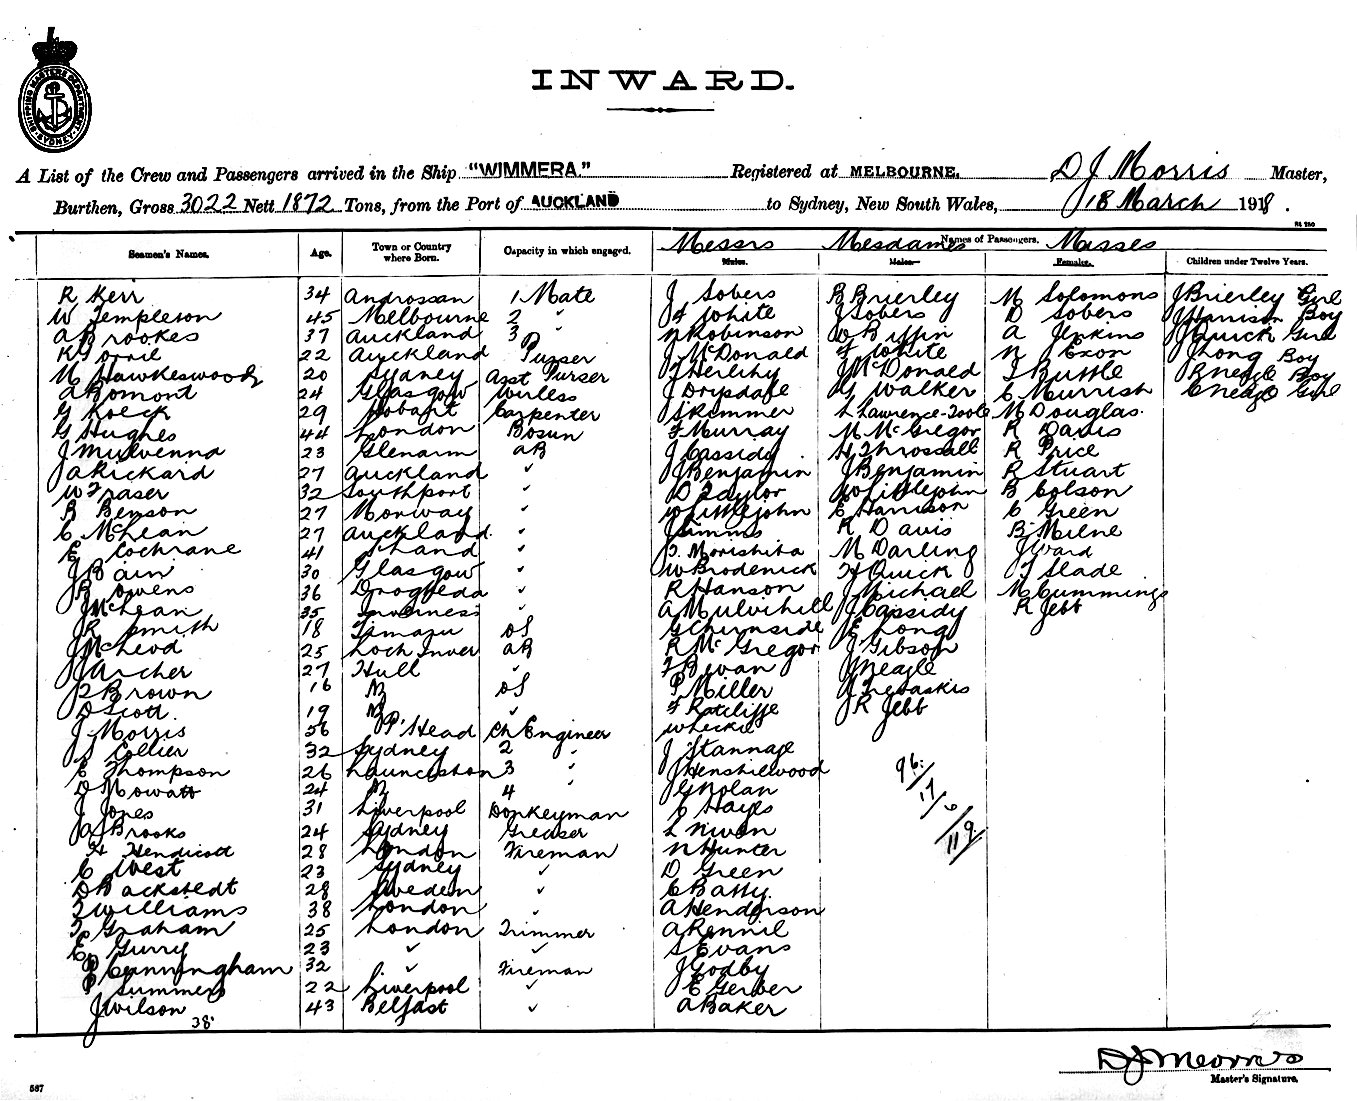 SHIPPING MASTERS DEPARTMENT SYDNEY
INWARD.
A List of the Crew and Passengers arrived in the Ship "WIMMERA." Registered at MELBOURNE, D J Morris Master,
Burthen, Gross 3022 Nett 1872 Tons, from the Port of AUCKLAND to Sydney, New South Wales, 18 March 1918.
Seamen's Names. Age. Town or Country where Born. Capacity in which engaged. Names of Passengers.
Messrs Mesdames Misses
Males. Males Females. Children under Twelve Years.
R Kerr 34 Androssan 1 Mate J Sobers B Brierley M Solomons J Brierley Girl
W Templeson 45 Melbourne 2 " F White J Sobers D Sobers J Harrison Boy
A Brookes 37 Auckland 3 " N Robinson D Biffin A Jenkins J Quick Girl
22 Auckland Purser J McDonald F White N Exon J Long Boy
M Hawkeswood 20 Sydney Asst Purser J Herlihy J McDonald T Buttle R Neagle Boy
A Bomont 24 Glasgow Wireless J Drysdale G Walker C Murrish C Neagle Girl
G Koeck 29 Hobart Carpenter J Skemmer L Lawrence-Toole M Douglas.
G Hughes 44 London Bosun F Murray M McGregor R Davis
J Mulvenna 23 Glenarm AB J Cassidy H Throssall R Price
J A Rickard 27 Auckland ✓ J Benjamin J Benjamin R Stuart
W Fraser 32 Southport ✓ D Taylor W Littlejohn B Colson
B Benson 27 Norway ✓ W Littlejohn E Harrison C Green
C McLean 27 Auckland ✓ J Simms R Davis B Milne
E Cochrane 41 ✓ T Morishita M Darling J Ward
J Bain 30 Glasgow ✓ W Brodenick H Quick T Slade
J B Owens 36 Drogheda ✓ R Hanson J Michael M Cummings
J McLean 35 Inverness ✓ A Mulvihill J Cassidy R Jebb
J R Smith 18 Timaru OS G Chirnside E Long
J McLeod 25 Loch Inver AB R McGregor J Gibson
J Archer 27 Hull ✓ F Bevan J Neagle
J Brown 16 NZ OS P Miller J Trevaskis
D Scott. 19 NZ ✓ F Ratcliffe R Jebb
J Morris 56 P. Head Ch Engineer W Leckie
J Collier 32 Sydney 2 " J Stannage
C Thompson 26 Launceston 3 " J Henshilwood 96.
D Mowatt 24 NZ 4 " J G Nolan 17/6
J Jones 31 Liverpool Donkeyman C Hayes 119
A J Brooks 24 Sydney Greaser L Niven
H Hendicott 28 London Fireman N Hunter
C West 23 Sydney ✓ D Green
D Backstedt 28 Sweden ✓ C Batty.
T Williams 38 London ✓ A Henderson
T Graham 25 London Trimmer A Rennie
E Gurry 23 ✓ ✓ S Evans
P Cunningham 32 ✓ Fireman J Godby
P Summers 22 Liverpool ✓ E Gerber
J Wilson 43 Belfast ✓ A Baker
38
D J Morris
Master's Signature.
587